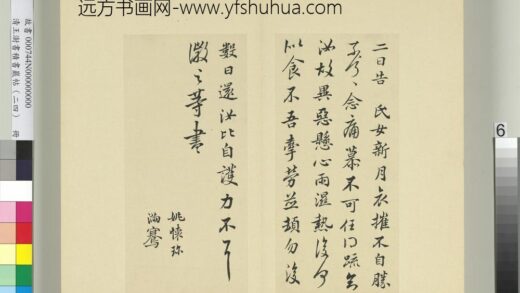 远方书画网-www.yfshuhua.com
二日告 氏女新月哀摧不自勝
奈何〻念痛慕不可任得疏知
汝故異惡懸心雨濕熱復何
似食不吾牽勞並頓勿復
數日還汝比自護力不一一
羲之等書
姚懷珍
滿騫
故書 000744N000000000
清王澍書積書巖帖(二四) 冊
6